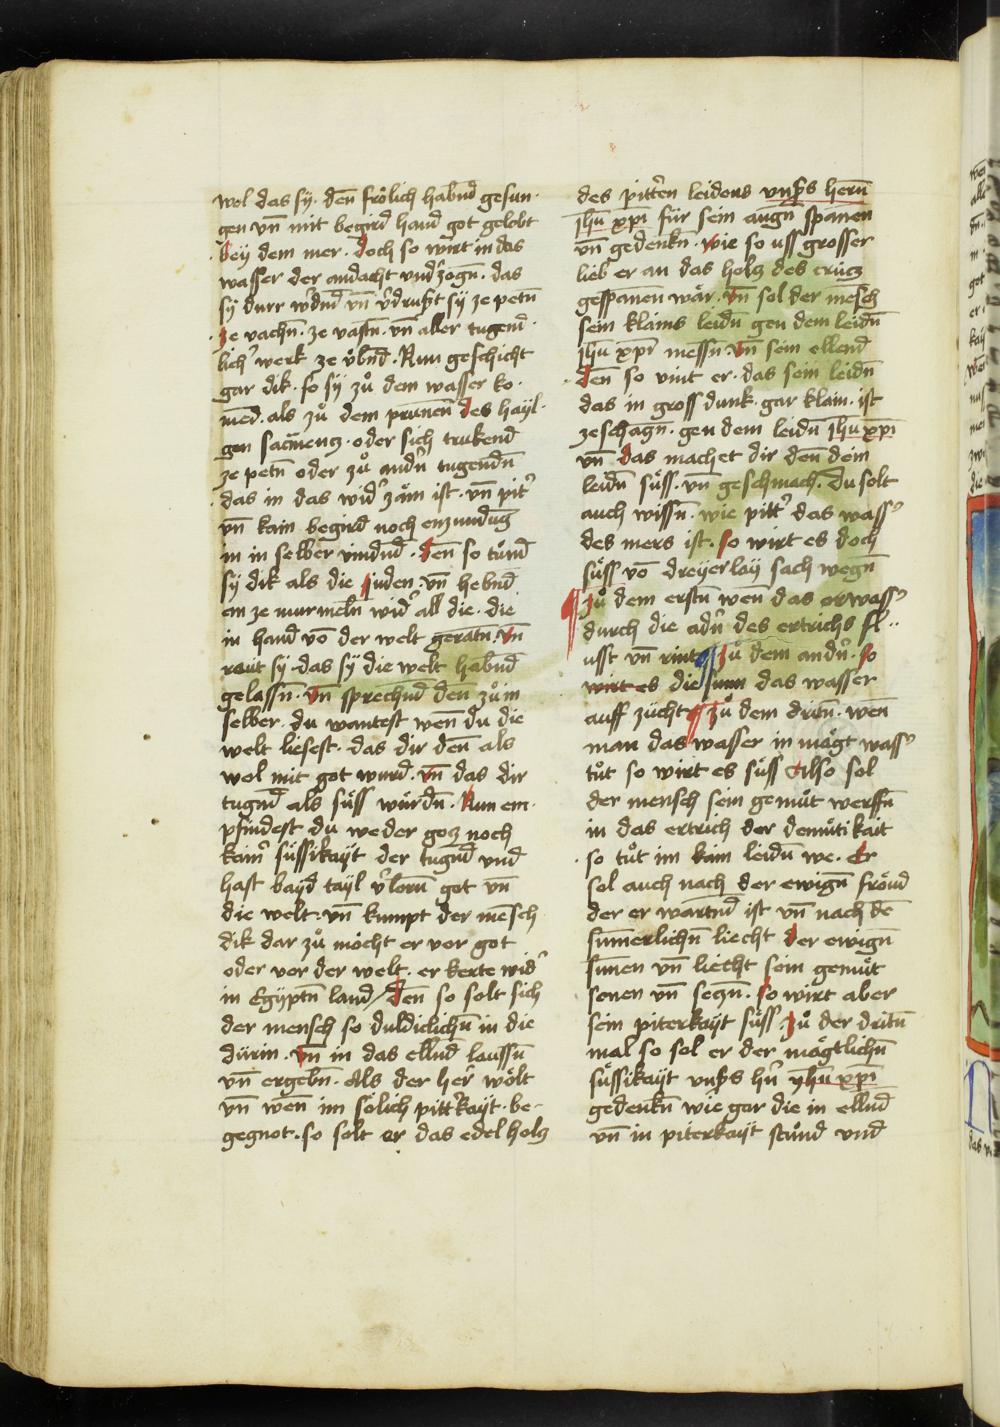 wol das sÿ. den̄ frölich habn̄d gesun·
gen vn̄ mit begird han̄d got gelobt
beÿ dem mer. doch so wirt in das
wasser der andacht vnd̾zogn̄. das
sÿ durr w̾dn̄d vn̄ v̾drußt sÿ ze petn̄
ze vachn̄. ze vastn̄. vn̄ aller tugend·
lich̾ werk ze v̈bn̄d. Nun geschicht
gar dik. so sÿ zů dem wasser ko·
men̄d. als zů dem prunen̄ des haÿl·
gen sacm̄encz. oder sich trukend
ze petn̄ oder zů andn̄ tugendn̄
das in das wid̾ zäm ist. vn̄ pit̾
vn̄ kain begird noch enzundūg
in in selber vindn̄d. den̄ so tůnd
sÿ dik als die juden. vn̄ hebn̄d
an ze murmeln̄ wid̾ all die. die
in han̄d vō der welt geratn̄. vn̄
raüt sÿ. das sÿ die welt habn̄d
gelassn̄. vn̄ sprechn̄d den̄ zů in
selber. du wantest wen̄ du die
welt liesest. das dir den̄ als
wol mit got wurd. vn̄ das dir
tugn̄d als süss würdn̄. Nun em·
pfindest du weder gocz noch
kain̾ süssikaÿt der tugn̄d vnd
hast baÿd taÿl v̾lorn̄ got vn̄
die welt. vn̄ kumpt der mēsch
dik dar zů möcht er vor got
oder vor der welt. er kerte wid̾
in Egÿptn̄ land / den̄ so solt sich
der mensch so duldiclichn̄ in die
dürin. vn̄ in das elln̄d laussn̄
vn̄ ergebn̄. Als der her̄ wölt
vn̄ wen̄ im sölich pitt̾kaÿt. be-
gegnot. so solt er das edel holz
des pitt̾en leidens vnßs hern̄
jhū xpī für sein augn̄ spanen
vn̄ gedenkn̄. wie so uss grosser
lieb er an das holcz des crücz
gespanen wär. vn̄ sol der mēsch
sein klains leidn̄ gen dem leidn̄
jhū xpī messn̄. vn̄ sein ellend
den̄ so vint er. das sein leidn̄
das in gross dunk. gar klain. ist
ze schäczn̄. gen dem leidn̄ jhū xpī
vn̄ das machet dir den̄ dein
leidn̄ süss. vn̄ geschmach. Du solt
auch wissn̄. wie pitt̾ das wass̾
des mers ist. so wirt es doch
süss vō dreÿerlaÿ sach wegn̄
zů dem erstn̄ wen̄ das erwass̾
durch die adn̄ des ertrichs fl..
usst vn̄ rint zů dem andn̄. so
wirt es die sunn das wasser
auff zücht zů dem dritn̄. wen̄
man das wasser in mägt wass̾
tůt so wirt es süss Also sol
der mensch sein gemüt werffn̄
in das ertrich der demütikait
so tůt im kain leidn̄ we. Er
sol auch nach der ewign̄ fröud
der er wartn̄d ist vn̄ nach dē
sun̄erlichn̄ liecht der ewign̄
sunen vn̄ liecht sein gemüt
senen vn̄ seczn̄. so wirt aber
sein piterkaÿt süss. zů der dritn̄
mal so sol er der mägtlichn̄
süssikaÿt vnßs hn̄ ÿhū xpī
gedenkn̄ wie gar die in elln̄d
vn̄ in piterkaÿt stůnd vnd